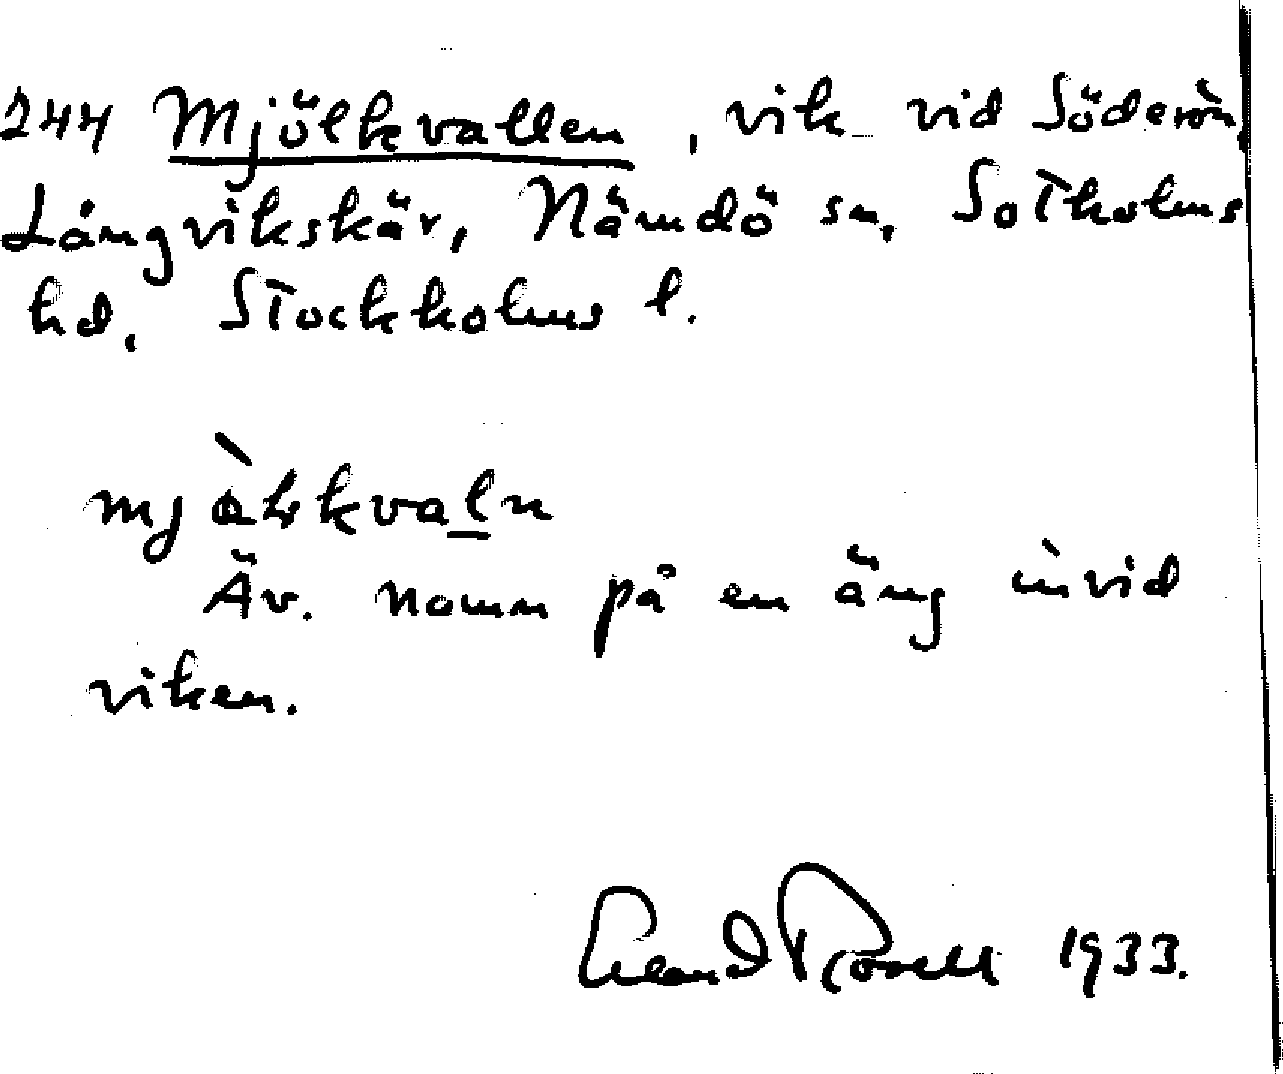 244 Mjölkvallen, vik vid Söderön,
Långvikskär, Nämdö sn, Sotholms
hd, Stockholms l.
Äv. namn på en äng invid
viken.
Erland Rosell 1933.